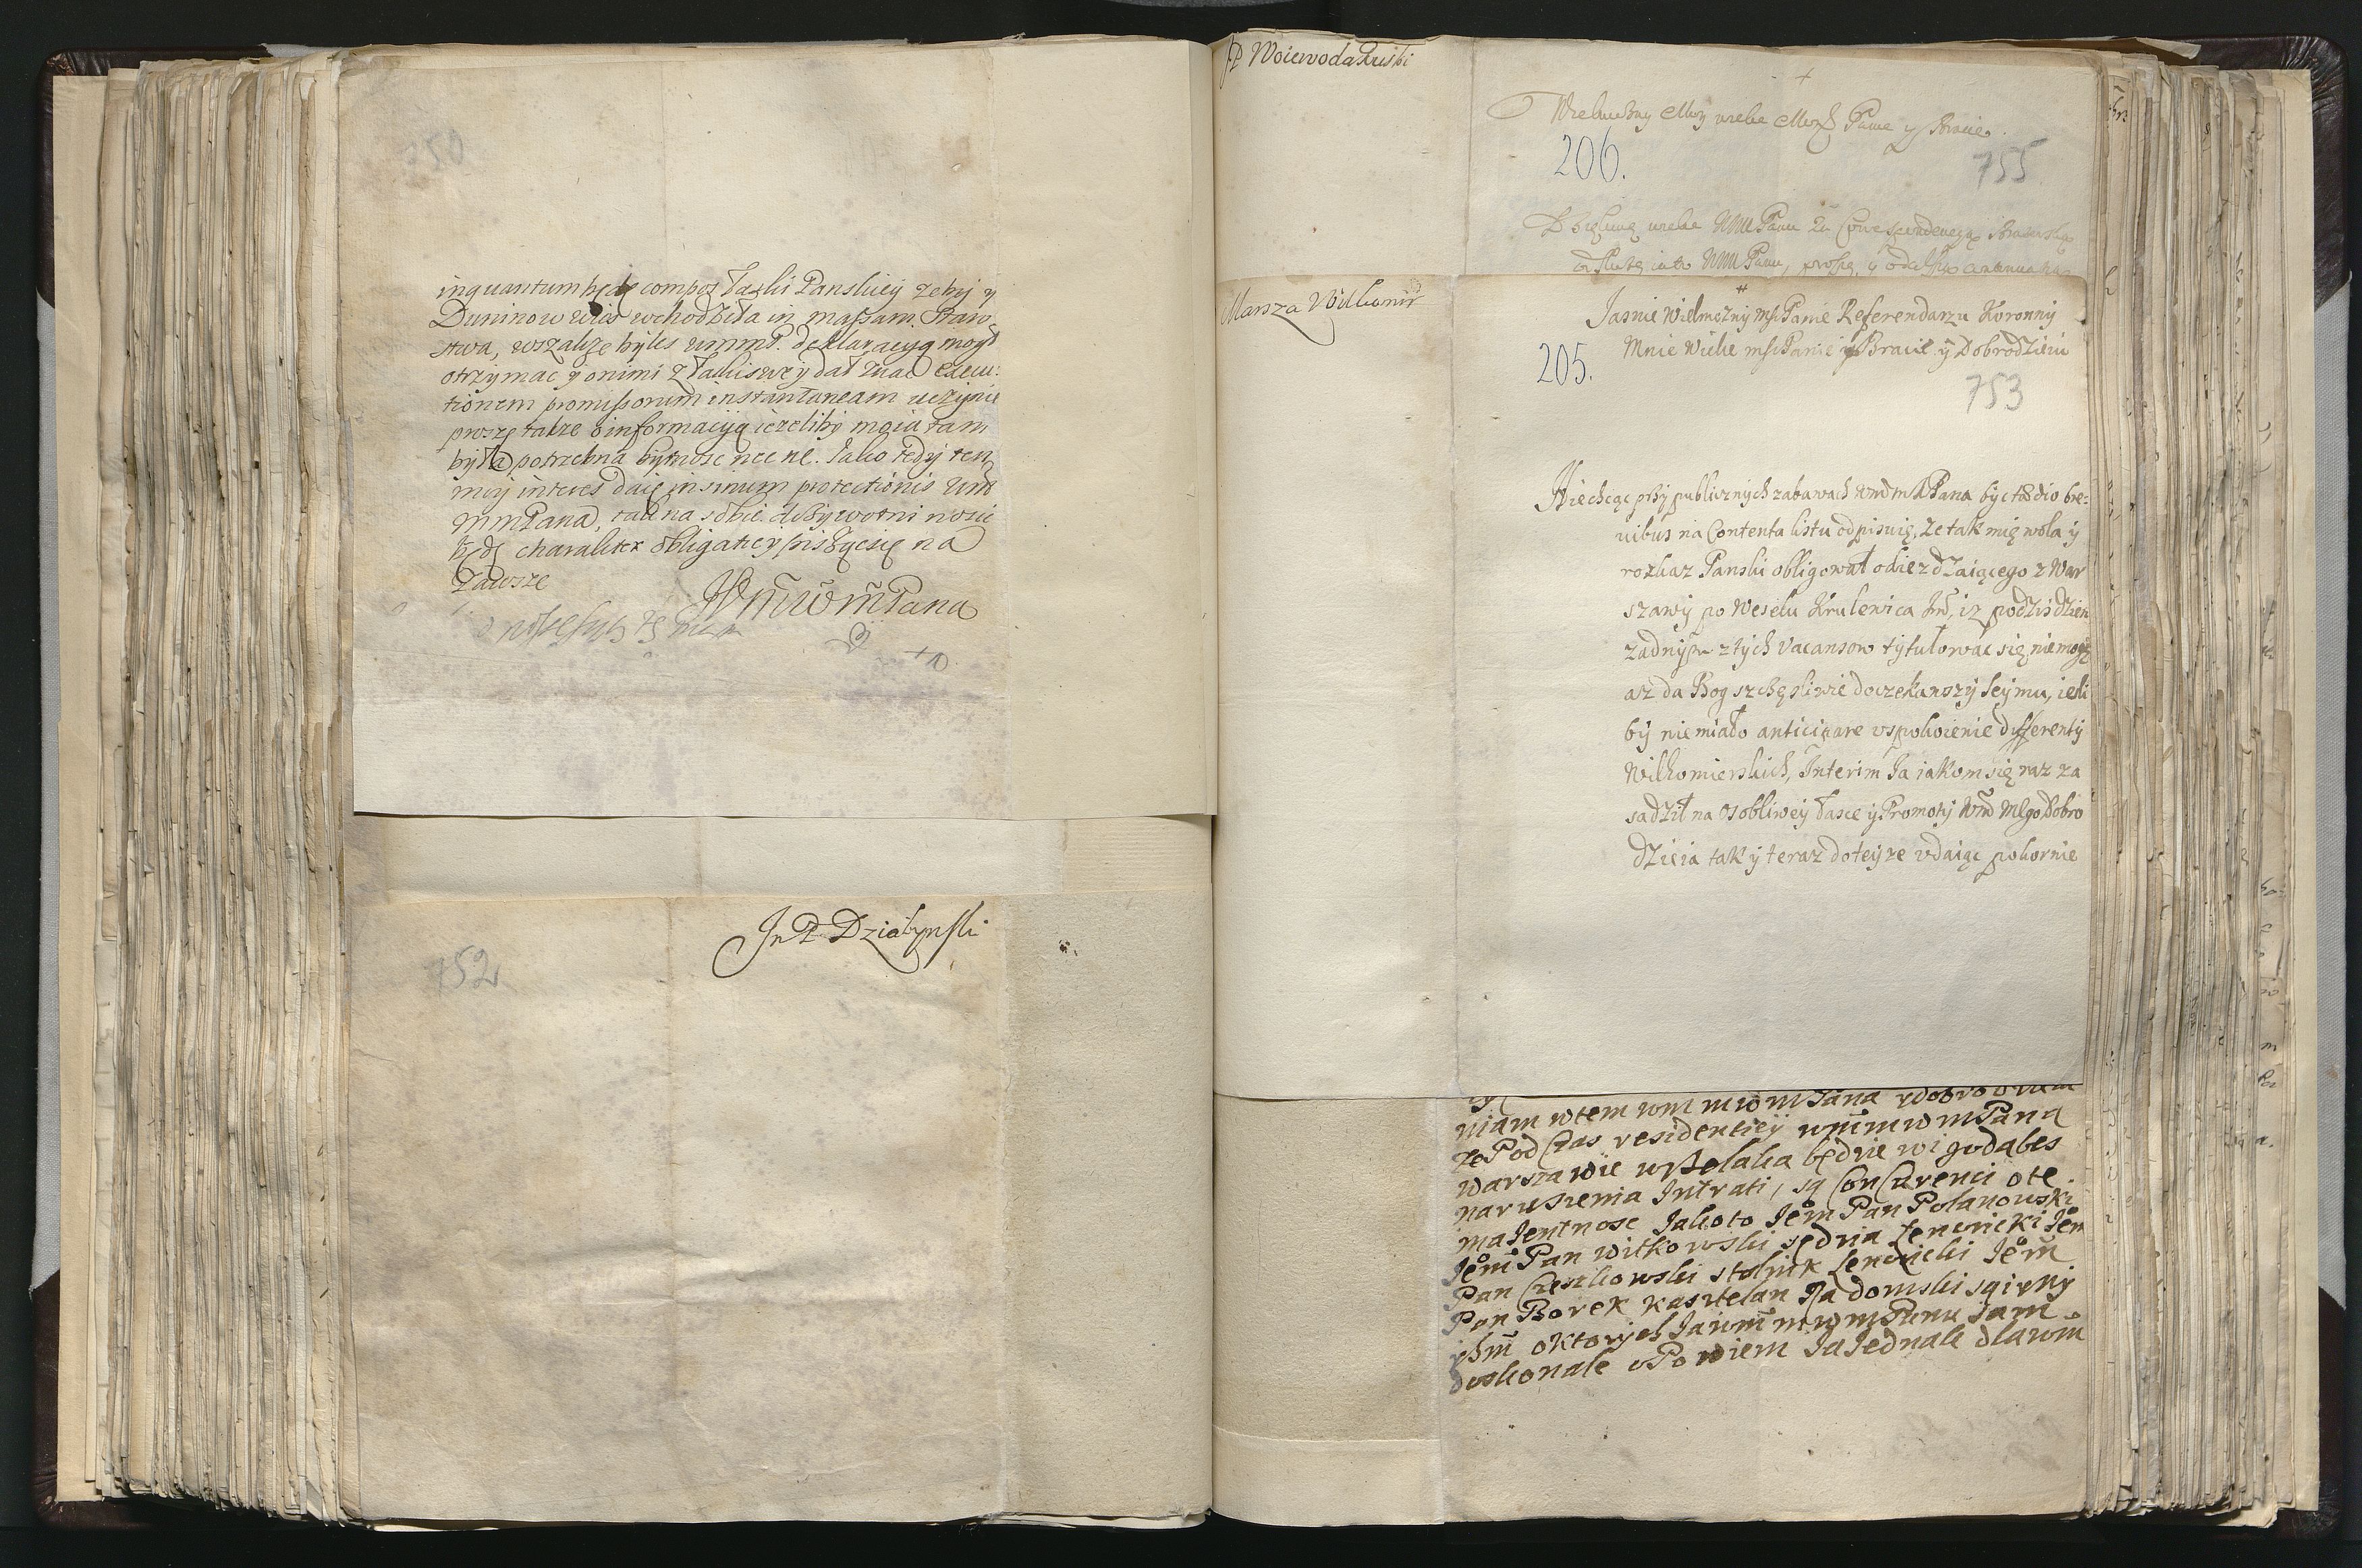 750
inquantum będę compos Łaski Panskiey zeby y
Duninow wies wchodziła in massam Staro
stwa, wszakże byles wmmP. deklaracyą mogł
otrzymac y onimi z Łaski swey dał znac Execu:
tionem promissorum instantaneam uczynic
proszę także o informacyą ieżeliby moia tam
była potrzebna bytnosc nec ne. Jako tedy ten
moy interes daię in sinum protectionis Wm
mmPana, tak na sobie dożywotni nosic
będę charakter obligatiey pisząc się na
zawsze
WmWmPana
752
JmP Działynski
JP Woiewoda Ruski
Wielmozny Moy wielce Mosci Panie y Bracie.
206.
755
Dziękuię wielce WMM Panu za Correspondencyą
WMM Panu, proszę, y
Marsza Wilkomir
Jasnie Wielmożny msci Panie Referendarzu Koronny
205.
Mnie Wielce msci Panie y Bracie y Dobrodzieiu
753
Niechcąc przy publicznych zabawach wmPana być tædio bre:
vibus na Contenta listu odpisuię, że tak mię wola y
rozkaz Panski obligował odiezdzaiącego z War
szawy po Weselu Krulewica Jm, iz podzisdzien
żadnym z tych vacansow tytułować się niemogę
asz da Bog szczęsliwie doczekawszy Seymu, iesli
by niemiało anticipare uspokoienie differenty
Wilkomierskich, Interim Ja iakom się raz za
sadził na Osobliwey łasce y Promoty Wm Mgo Dobro
dzieia tak y teraz do teyze udaiąc pokornie
niam wtem wm mwmPana y dobrodzieia
ze Pod Czas residentiey wmmwmPana
warszawie wszelaka będzie wigoda bes
naruszenia Intrati, są ConCurenci o te
maientnosc Jako to Jem Pan Polanowski
Jem Pan witkowski sędzia Lencicki Jem
Pan Cieszkowski stolnik Lencicki Jem
Pan Borek kasztelan Radomski są inny
Ichm o ktorych Ja wm mwmPanu sam
doskonale oPowiem Ja Jednak dla wm